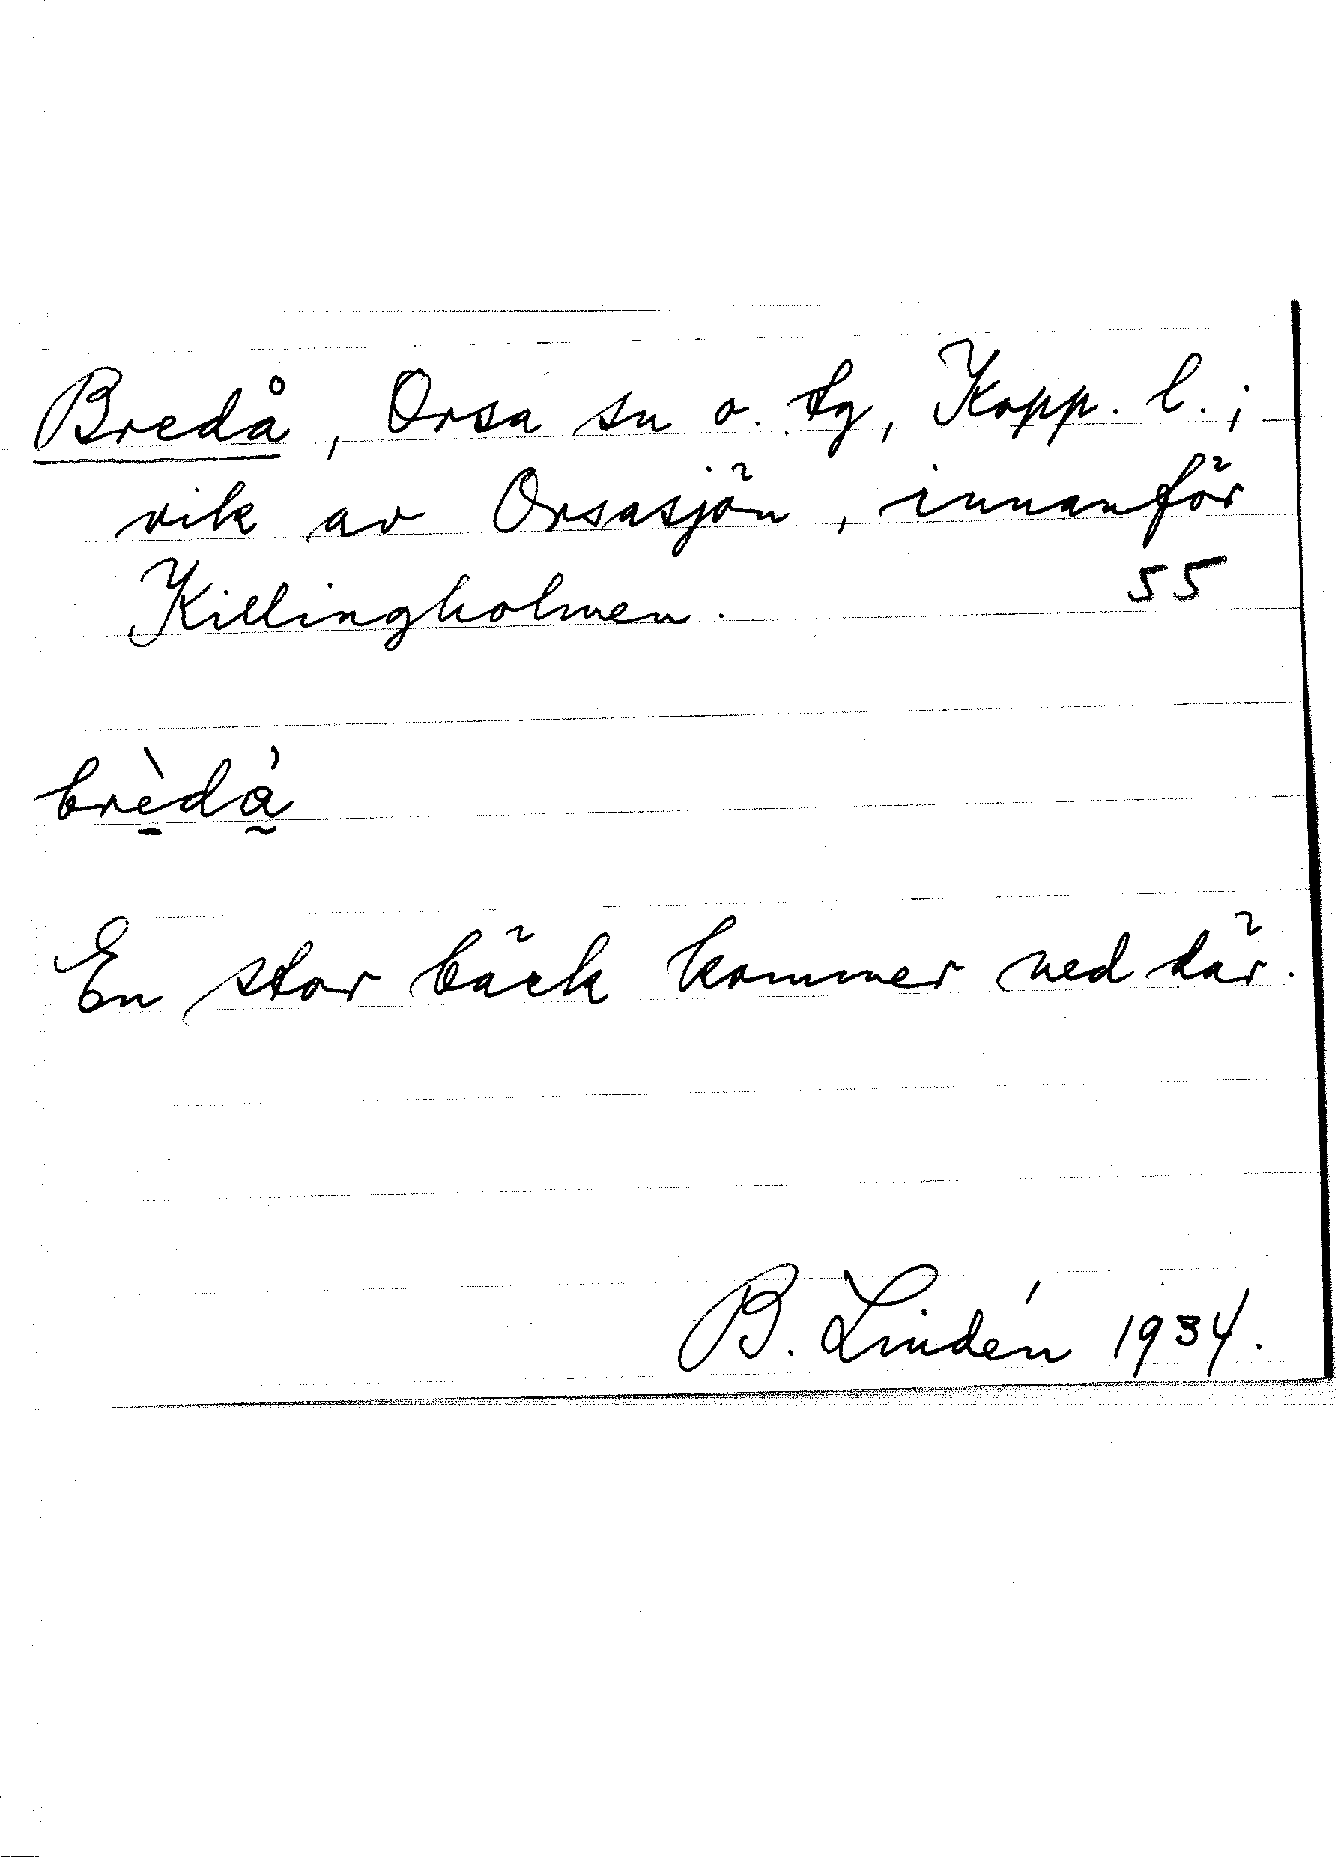 Bredå, Orsa sn o. tg, Kopp. l.;
vik av Orsasjön, innanför
Killingholmen. 55
brè̱dà̰
En stor bäck kommer ned där.
B. Lindén 1934.